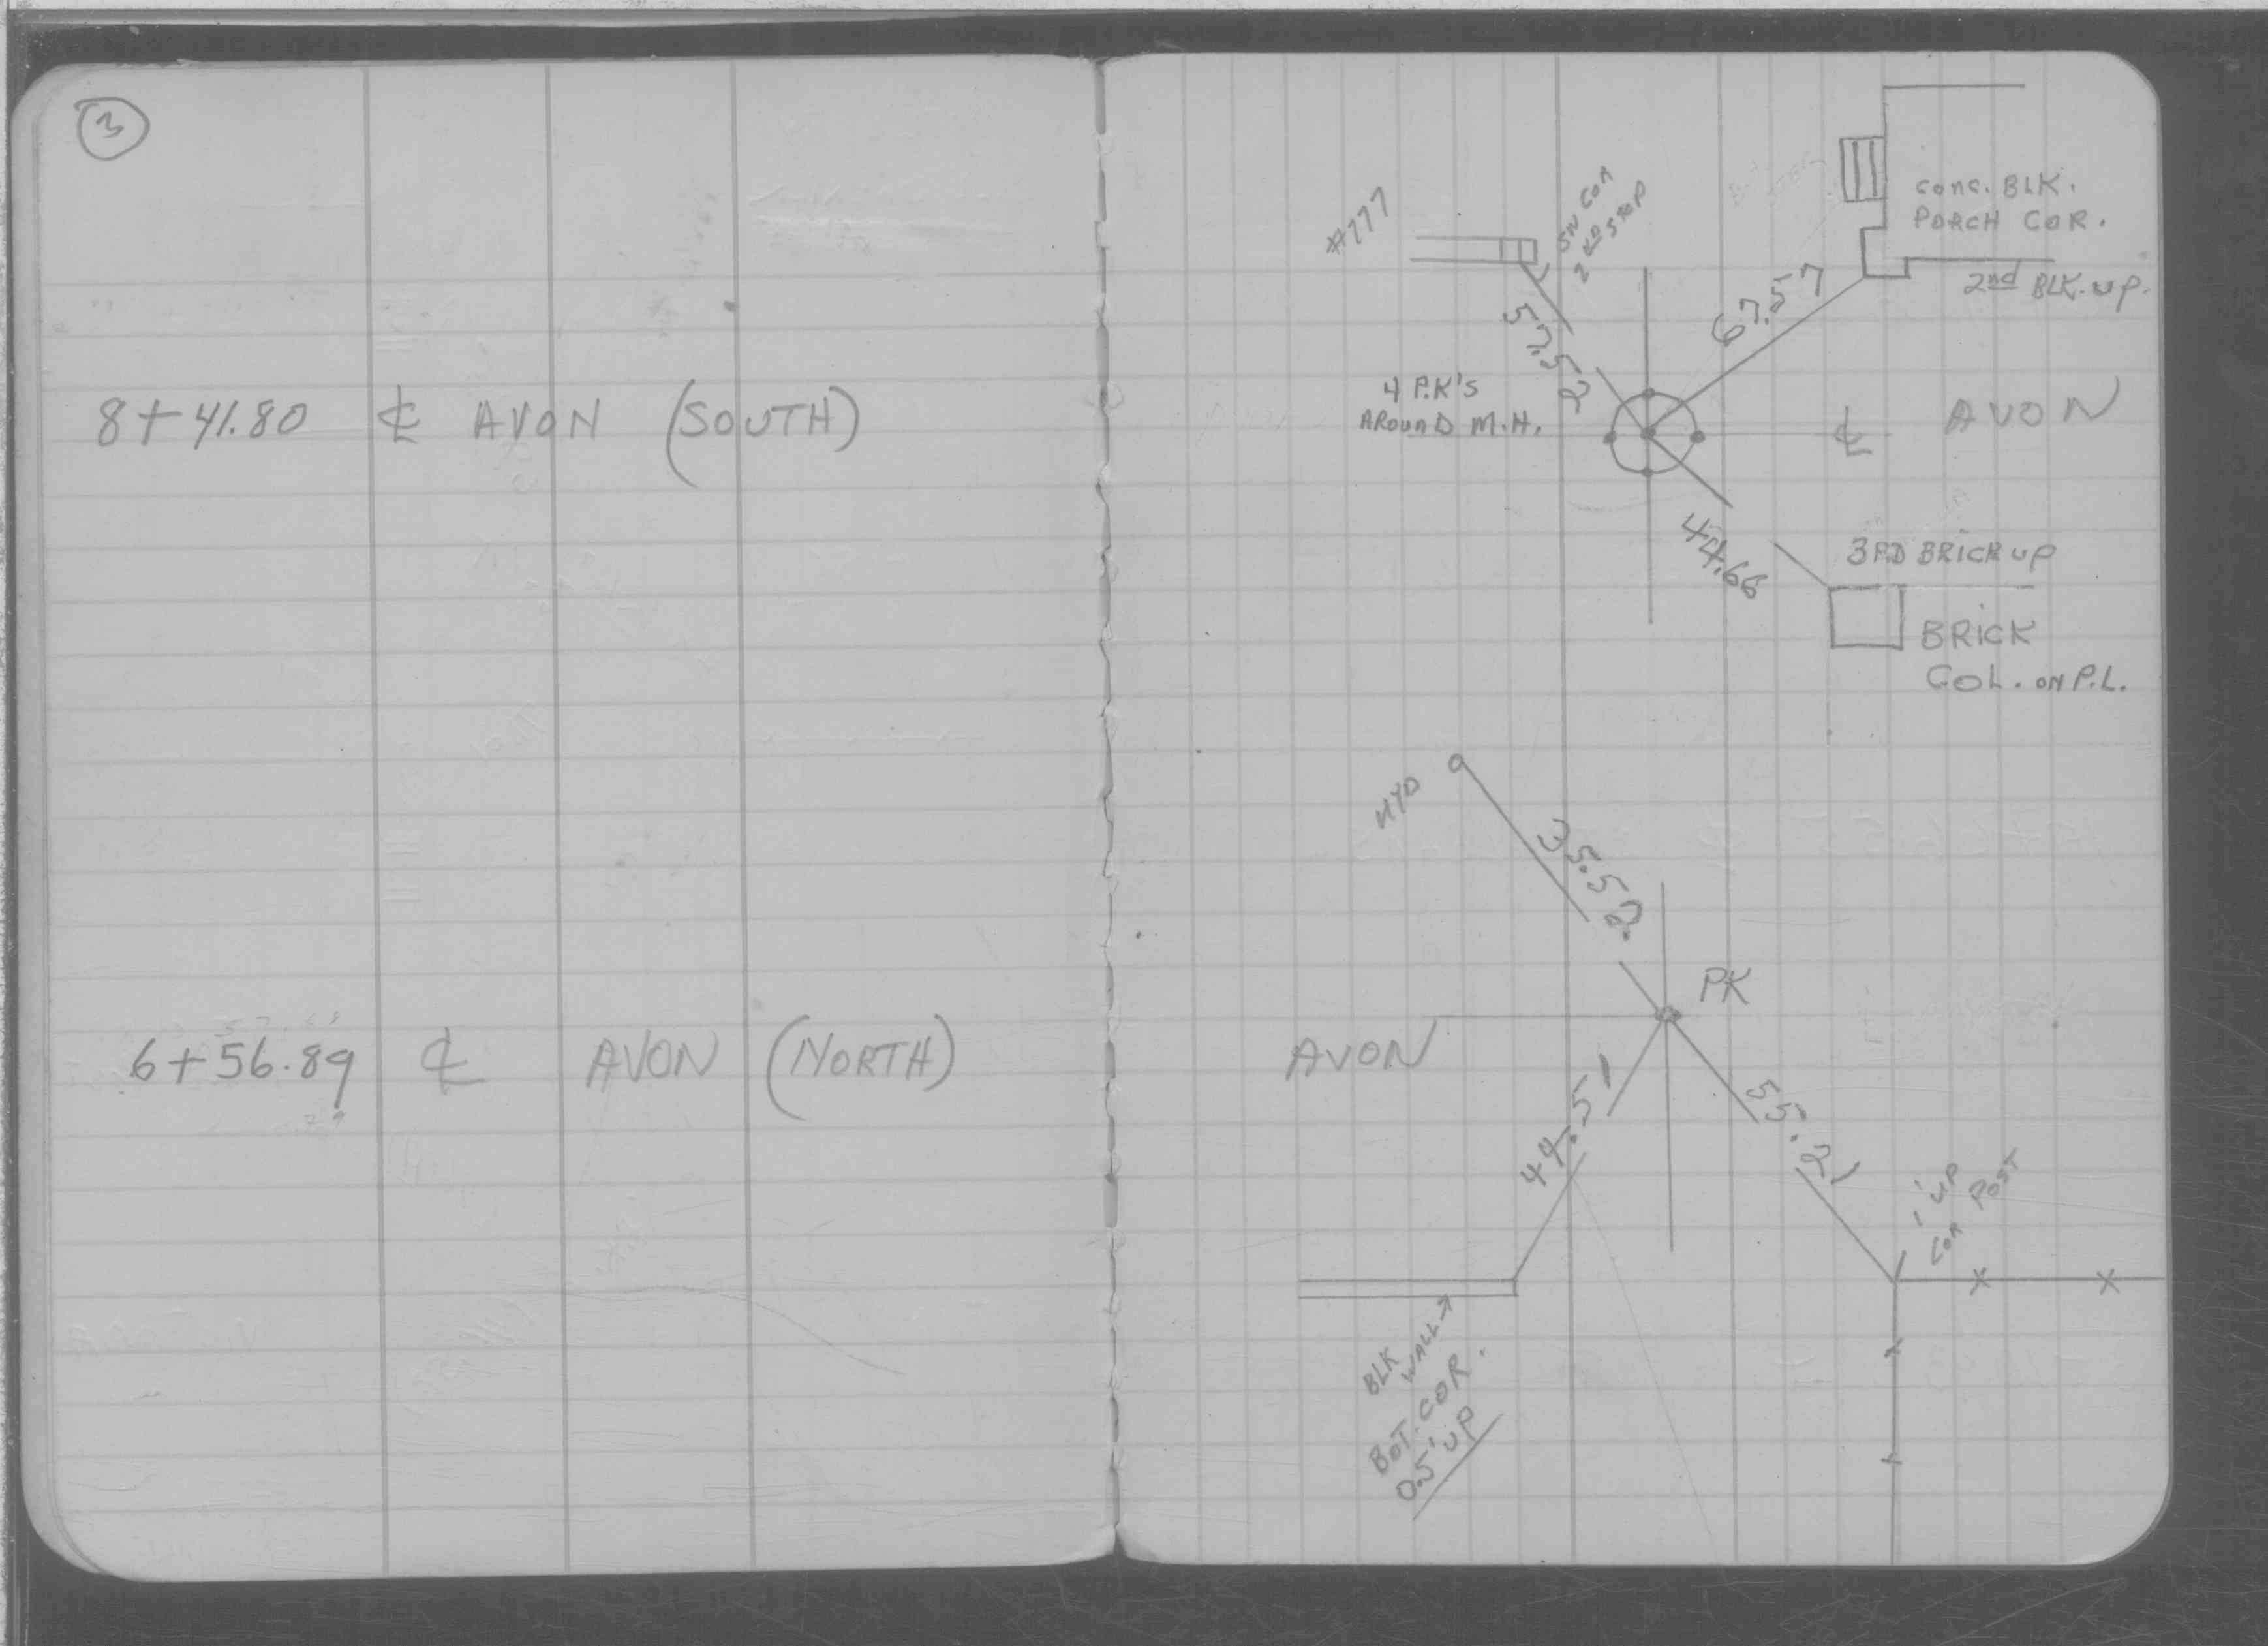 3
8+41.80 ℄ AVON (SOUTH)
6+56.89 ℄ AVON (NORTH)
#777
SW COR
2ND STOP
CONC. BLK.
PORCH COR.
2nd BLK. UP.
57.52
67.57
4 P.K's
AROUND M.H.
℄ AVON
44.66
3RD BRICK UP
BRICK
COL. ON P.L.
HYD
35.52
PK
AVON
44.51
55.21
1' UP
COR POST
BLK
WALL
BOT. COR.
0.5' UP